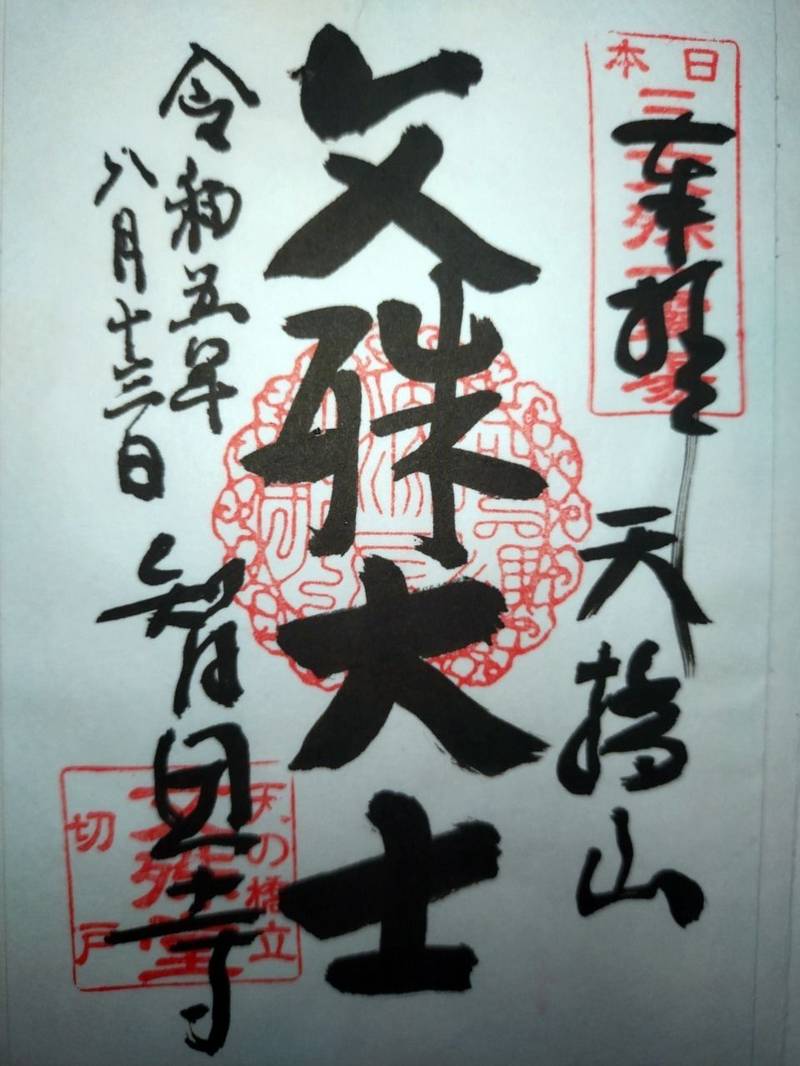 日本
三文殊随一霊場
奉拝
天橋山
文殊大士
令和五年
八月十三日
智恩寺
天の橋立
文殊堂
切戸